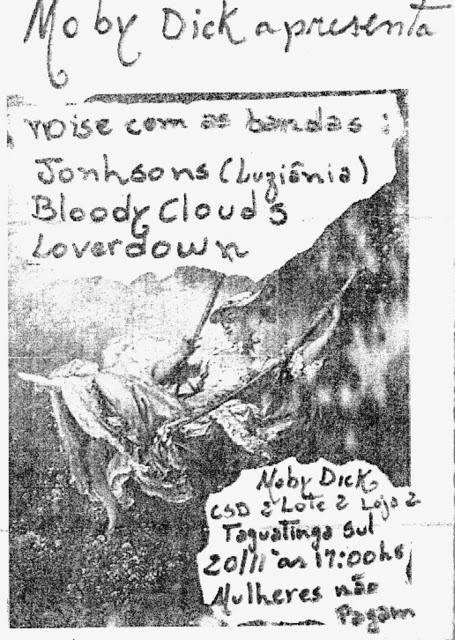 Moby Dick apresenta
noise com as bandas:
Jonhsons (Luziânia)
Bloody Clouds
Loverdown
Moby Dick
CSD 2 Lote 2 Loja 2
Taguatinga Sul
20/11 as 17:00hs
Mulheres não
Pagam